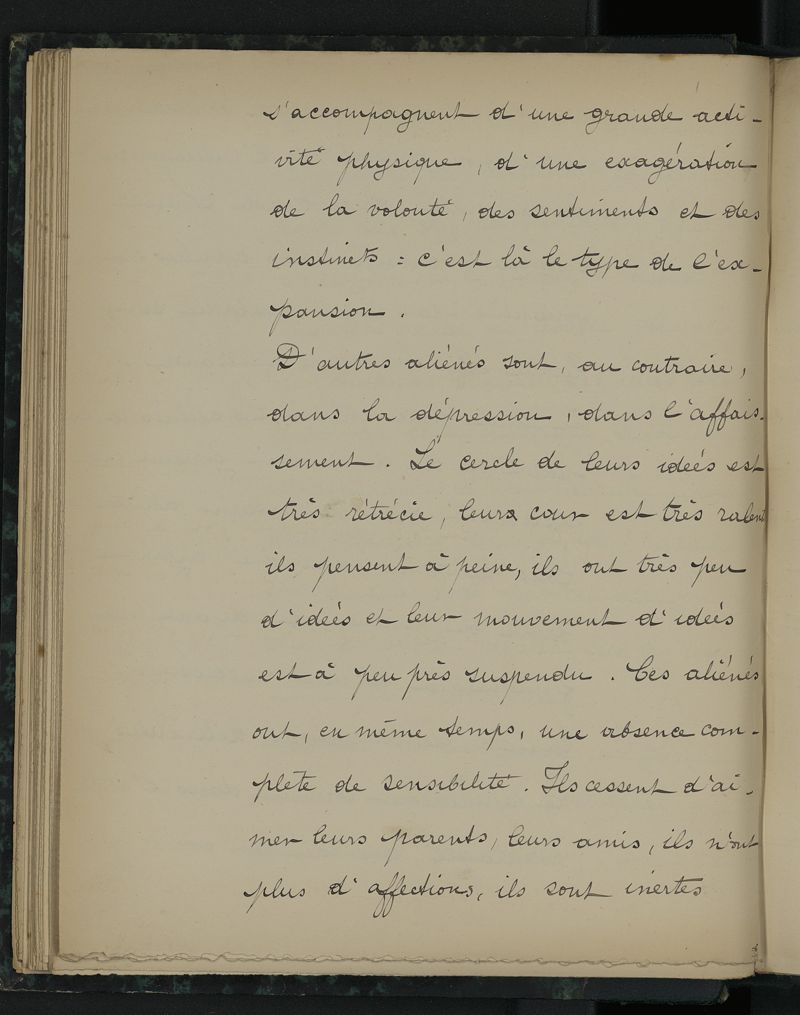 s'accompagnent d'une grande acti-
vité physique, d'une exagération
de la volonté, des sentiments et des
instincts : c'est là le type de l'ex-
pansion.
D'autres aliénés sont, au contraire,
dans la dépression, dans l'affais-
sement. Le cercle de leurs idées est
très rétrécie, leurs cour est très ralent
ils pensent à peine, ils ont très peu
d'idées et leur mouvement d'idées
est à peu près suspendu. Ces aliénés
ont, en même temps, une absence com-
plète de sensibilité. Ils cessent d'ai-
mer leurs parents, leurs amis, ils n'ont
plus d'affections, ils sont inertes